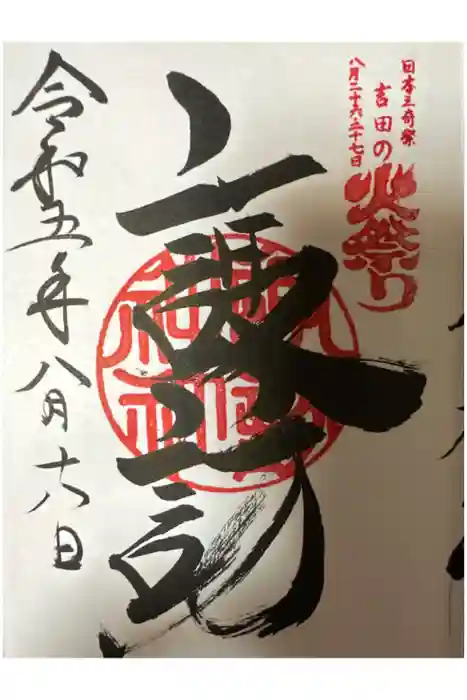 日本三奇祭
吉田の火祭り
八月二十六・二十七日
諏訪
令和五年八月 日